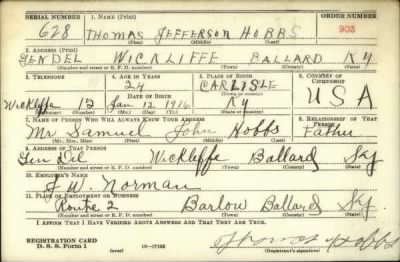 SERIAL NUMBER 1. NAME (Print) ORDER NUMBER
628 THOMAS JEFFERSON HOBBS 903
(First) (Middle) (Last)
2. ADDRESS (Print)
GENDEL WICKLIFFE BALLARD KY
(Number and street or R. F. D. number) (Town) (County) (State)
3. TELEPHONE 4. AGE IN YEARS 5. PLACE OF BIRTH 6. COUNTRY OF CITIZENSHIP
24 CARLISLE
DATE OF BIRTH
Wickliffe 12 Jan 12 1916 KY USA
7. NAME OF PERSON WHO WILL KNOW YOUR ADDRESS 8. RELATIONSHIP OF THAT PERSON
Mr Samuel John Hobbs Father
(Mr., Mrs., Miss) (First) (Middle) (Last)
9. ADDRESS OF THAT PERSON
Gen Del Wickliffe Ballard Ky
(Number and street or R. F. D. number) (Town) (County) (State)
10. EMPLOYER'S NAME
J. W. Norman
11. PLACE OF EMPLOYMENT OR BUSINESS
Route 2 Barlow Ballard Ky.
(Number and street or R. F. D. number) (Town) (County) (State)
I AFFIRM THAT I HAVE VERIFIED ABOVE ANSWERS AND THAT THEY ARE TRUE.
REGISTRATION CARD
D. S. S. Form 1 (over) 16-17105 (Registrant's signature)
Thomas J Hobbs